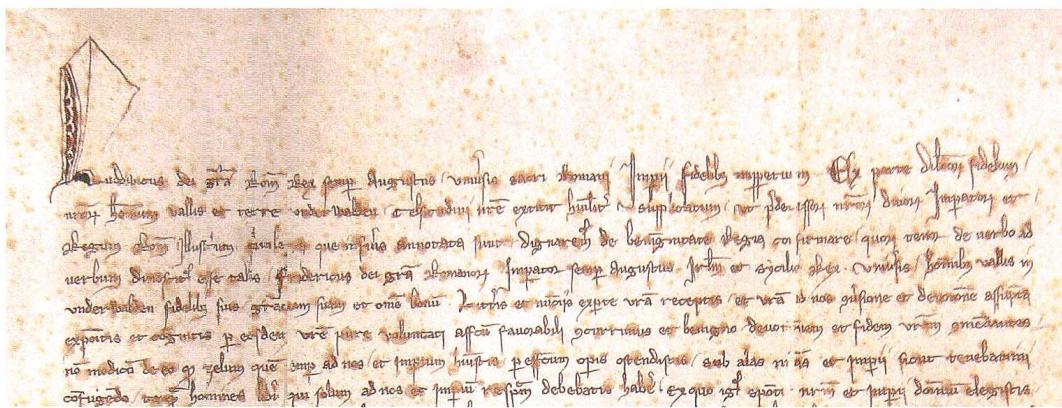 Ludowicus dei gra Rom Rex semp Augustus / Vniūsis sacri Romanij Impij fidelibz imppetuum Ex parte dilcorꝫ fidelium
nr̄orꝫ hoīum vallis et terre vnderwalden celsitudini nr̄e extitit hūilit supplicatum / vt pdecessorꝫ nr̄orꝫ diuorꝫ Imperatorꝫ et
Regum Rom illustrium que inferiꝰ annotata sunt dignarem̄ de benignitate Regia confirmare / quorꝫ tenor de verbo ad
verbum esse talis Fridericus dei gra Romanorꝫ Impator semp Augustus Irlm et Sycilie Rex Vniūsis hoībz vallis in
vnderwalden fidelibz suis graciam suam et omē bonū Litteris et nūcijs ex pte vrā receptis / et vrā ad nos ꝯuersione et deuotione assūpta
expositis et cognitis p eosdem vre pure voluntati affcū fauorabili ꝯcurrimus et benigno deuotōnem et fidem vrām ꝯmēdantes
nō modicū de eo qꝫ zelum quē semp ad nos / et Imperium p effectum opis ostendistis / sub alas nrās et Impij sicut tenebamini
cōfugiendo tamqꝫ homines libi qui solum ad nos et Imperiū respectū debebatis habe Ex quo igitur sponte nrm et Impij dominiū elegistis